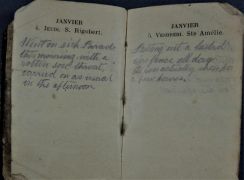 JANVIER
4. JEUDI. S. Rigobert.
Went on sick Parade
this morning with a
rotten sore throat,
carried on as usual
in the afternoon
JANVIER
5. VENDREDI. Ste Amélie.
Putting up a barbed
wire fence all day
a few hours.